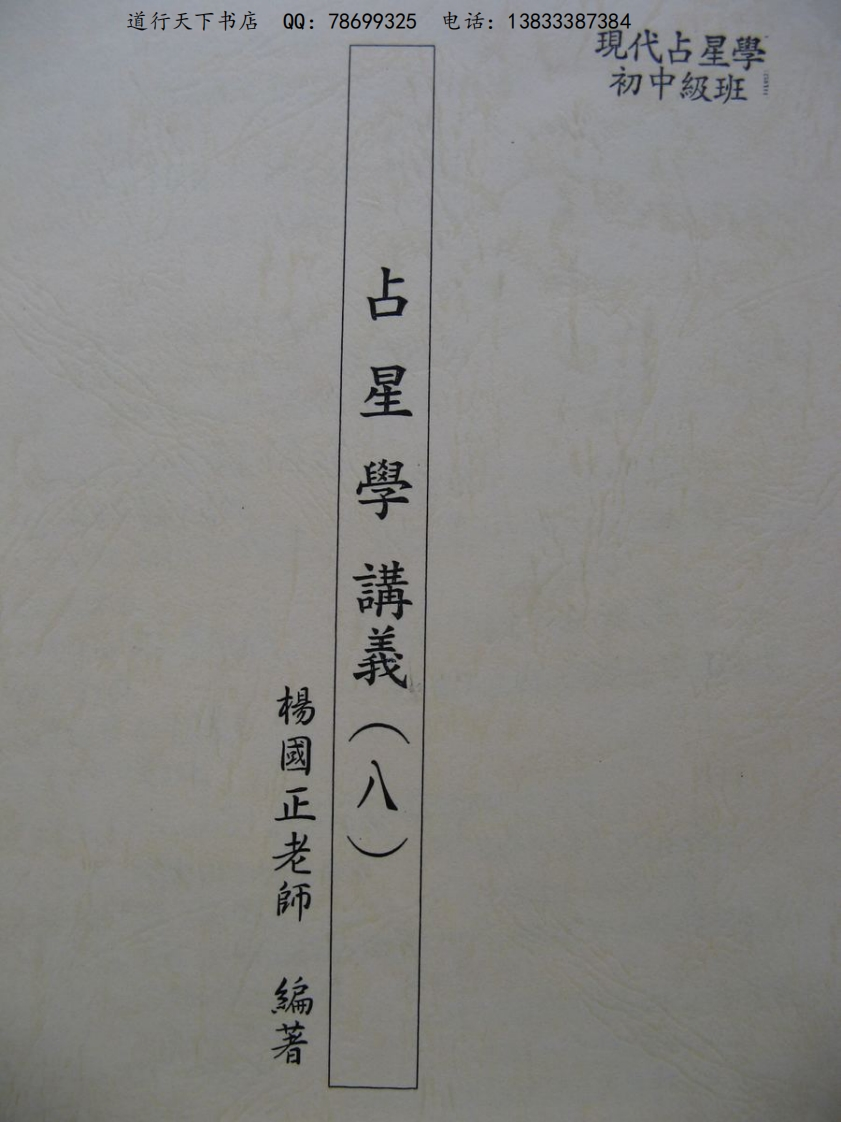 道行天下书店 QQ：78699325 电话：13833387384
現代占星學
初中級班
占星學講義（八）
楊國正老師 編著